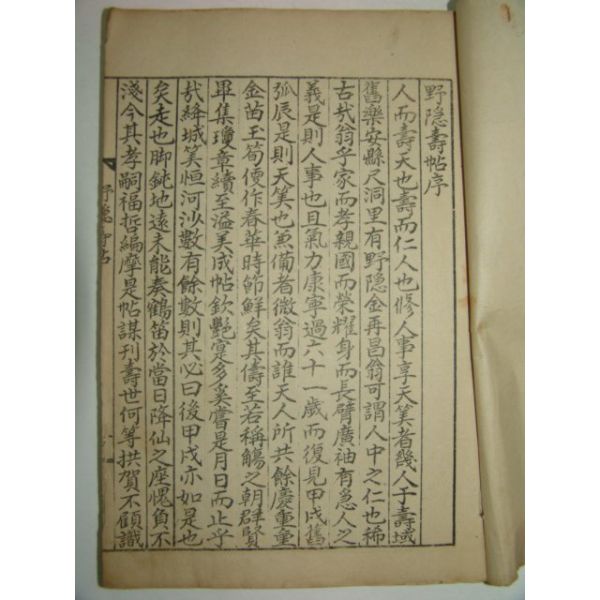 野隐壽帖序
人而壽天也壽而仁人也修人事享天筭者幾人于壽域
舊樂安縣尺洞里有野隐金再昌翁可謂人中之仁也稀
古㢤翁乎家而孝親國而榮耀身而長臂廣袖有急人之
義是則人事也且氣力康寧過六十一歲而復見甲戌舊
弧辰是則天筭也兼備者微翁而誰天人所共餘慶重重
金苗玉筍便作春華時節鮮矣其儔至若稱觴之朝群賢
畢集瓊章續至溢美成帖欽艶寔多矣嘗是月日而止乎
㢤絳城筭恒河沙數有餘數則其心曰後甲戌亦如是也
矣走也脚鈍地遠未能奏鶴笛於當日降仙之座愧負不
淺今其孝嗣福哲編摩是帖謀刊壽世何等拱賀不顧識
野隐壽帖